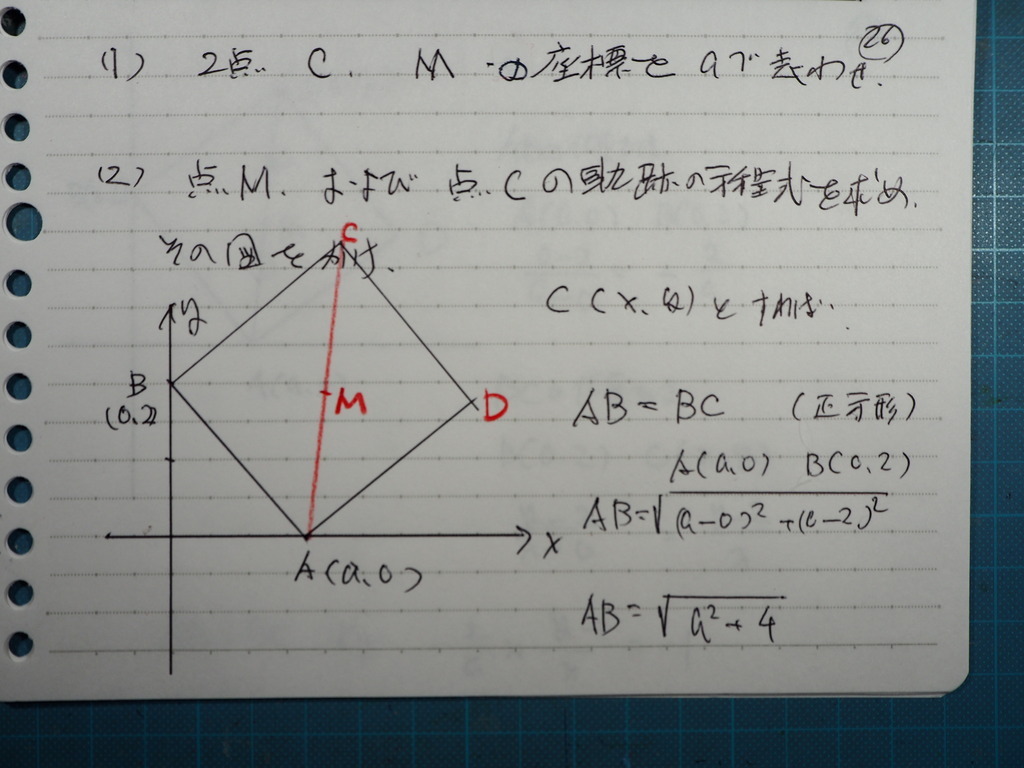 26
(1) 2点 C. M の座標を aで表わせ.
(2) 点M. および 点Cの軌跡の方程式を求め.
その図をかけ.
C
y
C (x, y) とすれば.
B
(0,2)
M
D
AB = BC (正方形)
A(a,0) B(0,2)
AB=√(a-0)²+(0-2)²
x
A(a,0)
AB=√a²+4